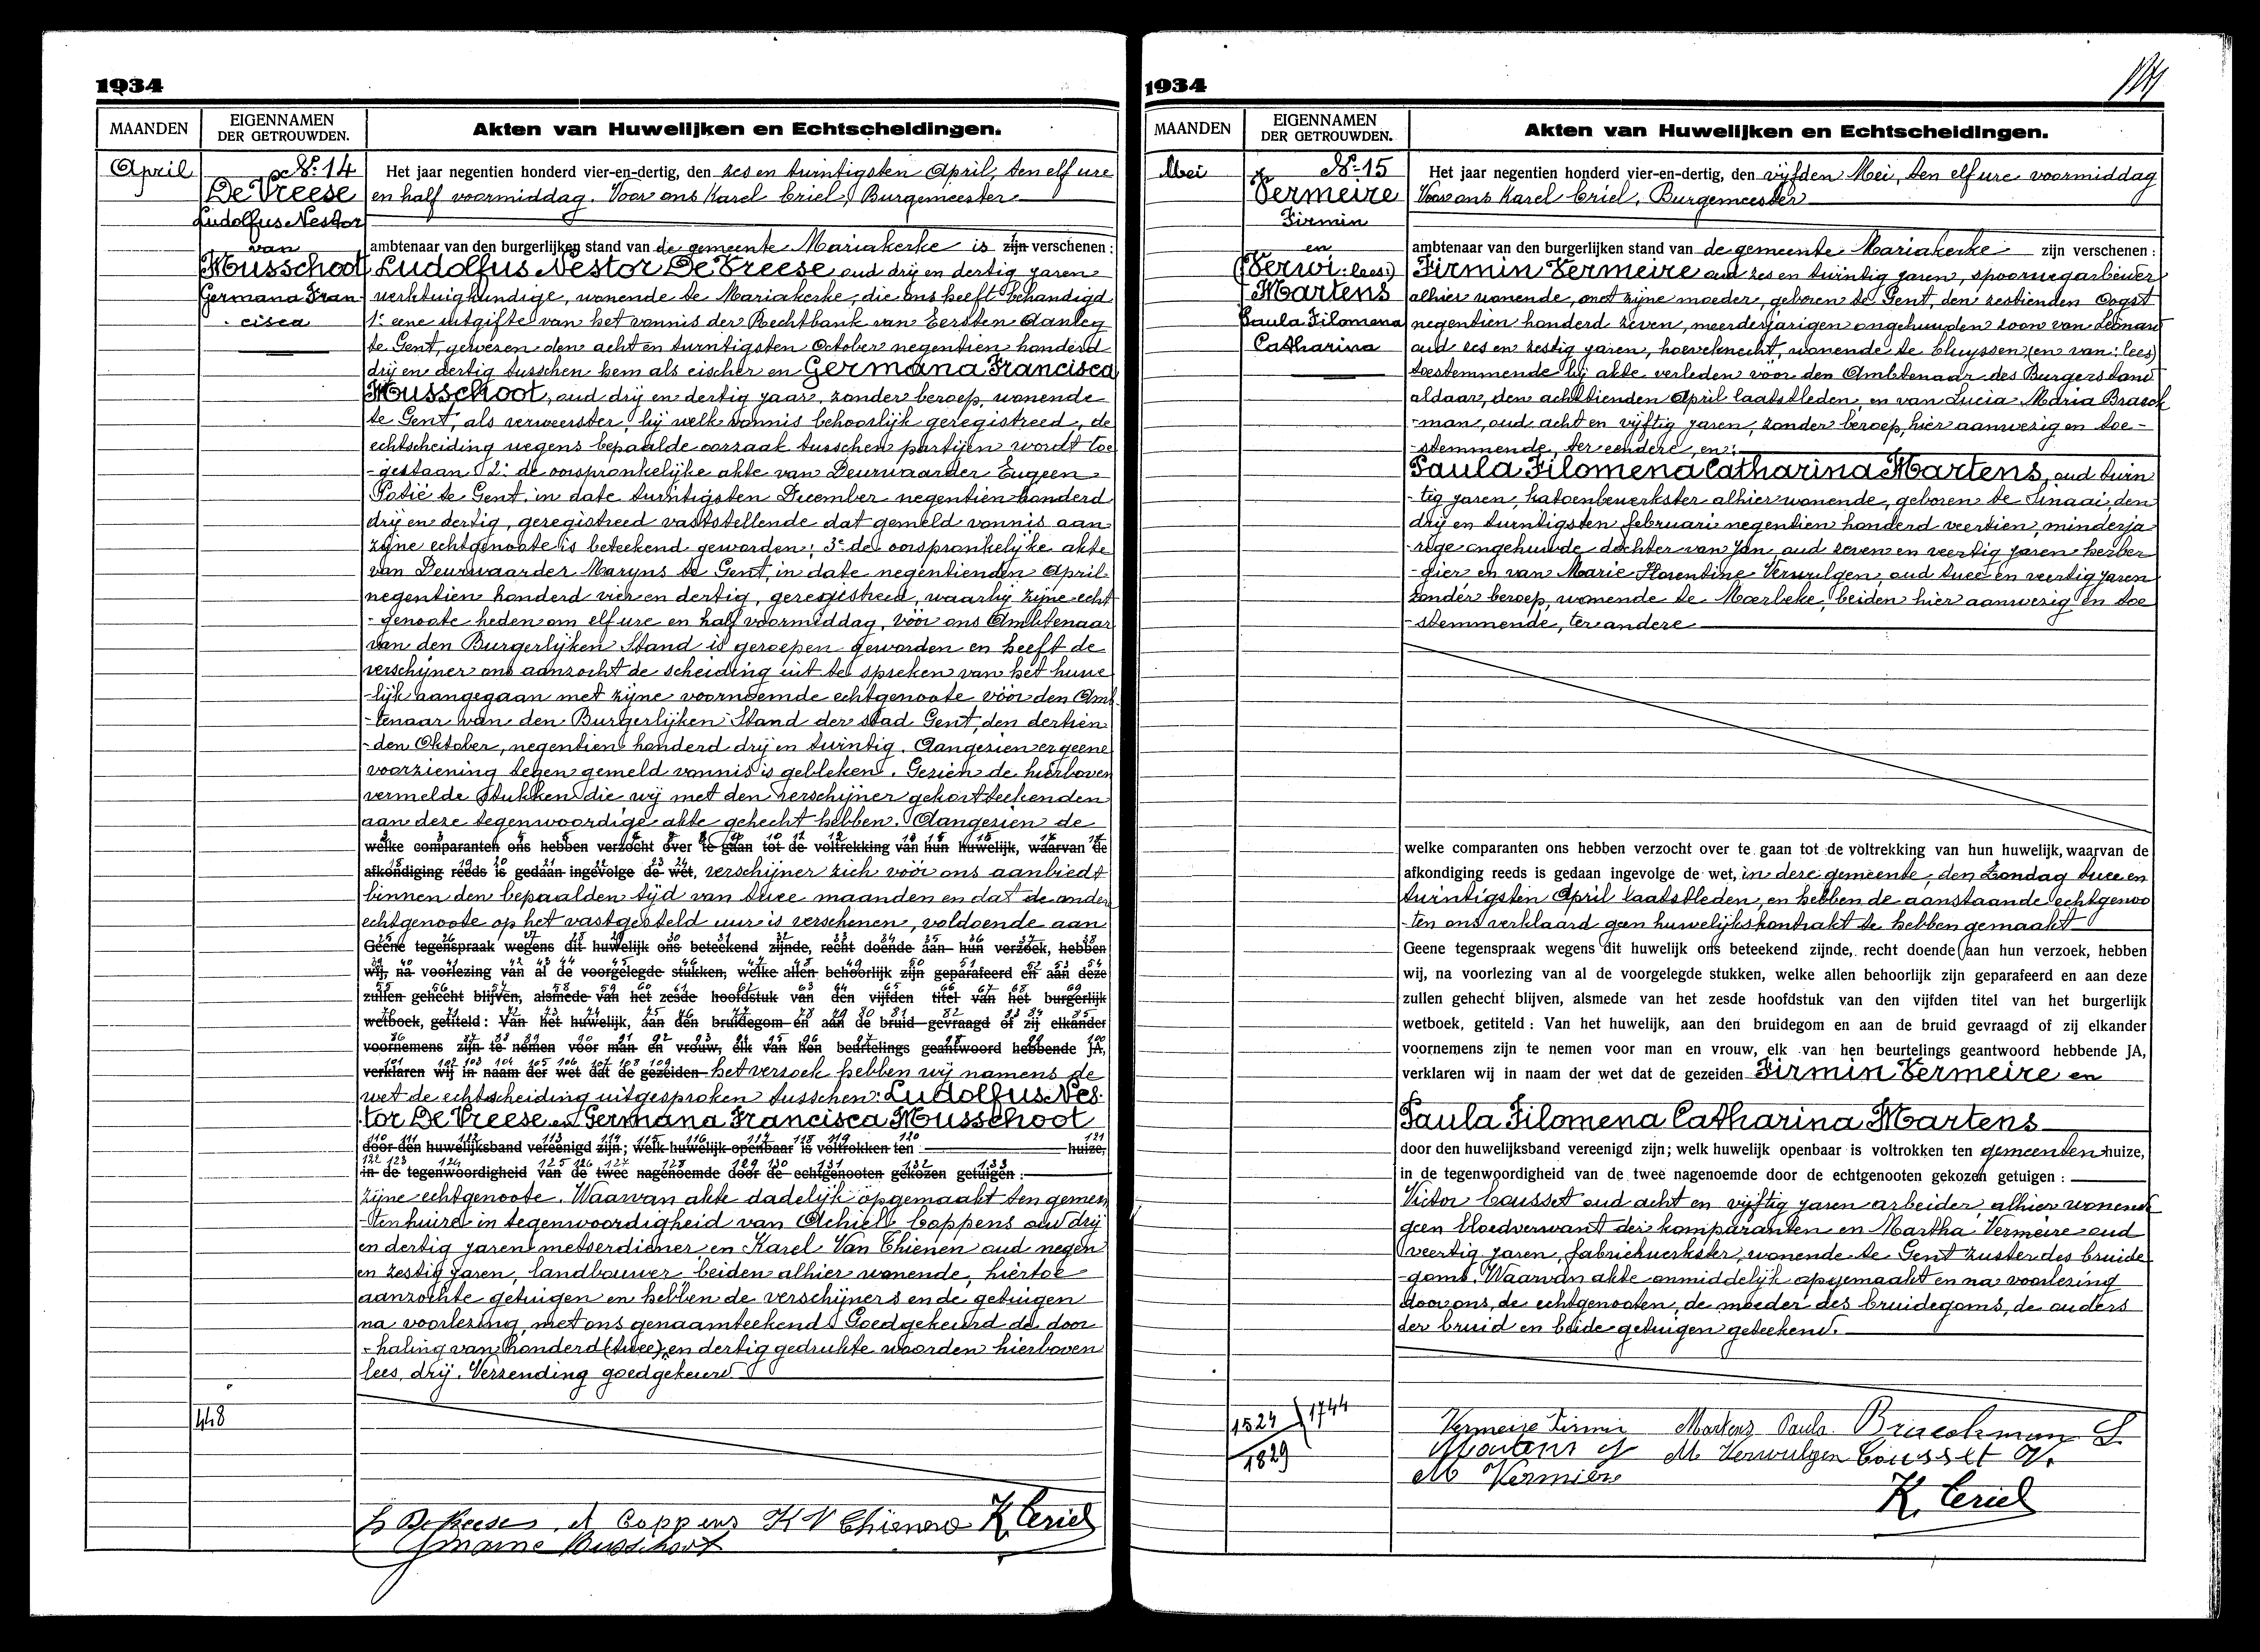 1934
MAANDEN
EIGENNAMEN
DER GETROUWDEN.
Akten van Huwelijken en Echtscheidingen.
April
Nr. 14
De Vreese
Ludolfus Nestor
van
Musschoot
Germana Fran
- cisca
Het jaar negentien honderd vier-en-dertig, den zes en twintigsten April, ten elf ure
en half voormiddag. Voor ons Karel Criel, Burgemeester
ambtenaar van den burgerlijken stand van de gemeente Mariakerke is zijn verschenen :
Ludolfus Nestor De Vreese oud drij en dertig jaren
werktuigkundige, wonende te Mariakerke, die ons heeft behandigd
1° eene uitgifte van het vonnis der Rechtbank van Eersten Aanleg
te Gent, gewezen den acht en twintigsten October negentien honderd
drij en dertig tusschen hem als eischer en Germana Francisca
Musschoot, oud drij en dertig jaar, zonder beroep, wonende
te Gent, als verweerster, bij welk vonnis behoorlijk geregistreed, de
echtscheiding wegens bepaalde oorzaak tusschen partijen wordt toe
- gestaan 2° de oorspronkelijke akte van Deurwaarder Eugeen
Potié te Gent, in date twintigsten December negentien honderd
drij en dertig, geregistreed vaststellende dat gemeld vonnis aan
zijne echtgenoote is beteekend geworden; 3° de oorspronkelijke akte
van Deurwaarder Maryns te Gent, in date negentienden April
negentien honderd vier en dertig, geregistreed, waarbij zijne echt
- genoote heden om elf ure en half voormiddag, vóór ons Ambtenaar
van den Burgerlijken Stand is geroepen geworden en heeft de
verschijner ons aanzocht de scheiding uit te spreken van het huwe
- lijk aangegaan met zijne voornoemde echtgenoote vóór den Amb
- tenaar van den Burgerlijken Stand der stad Gent, den dertien
- den Oktober, negentien honderd drij en twintig. Aangezien er geene
voorziening tegen gemeld vonnis is gebleken. Gezien de hierboven
vermelde stukken die wij met den verschijner gekortteekenden
aan deze tegenwoordige akte gehecht hebben. Aangezien de
welke comparanten ons hebben verzocht over te gaan tot de voltrekking van hun huwelijk, waarvan de
afkondiging reeds is gedaan ingevolge de wet, verschijner zich vóór ons aanbiedt
binnen den bepaalden tijd van twee maanden en dat de ander
echtgenoote op het vastgesteld uur is verschenen, voldoende aan
Geene tegenspraak wegens dit huwelijk ons beteekend zijnde, recht doende aan hun verzoek, hebben
wij, na voorlezing van al de voorgelegde stukken, welke allen behoorlijk zijn geparafeerd en aan deze
zullen gehecht blijven, alsmede van het zesde hoofdstuk van den vijfden titel van het burgerlijk
wetboek, getiteld : Van het huwelijk, aan den bruidegom en aan de bruid gevraagd of zij elkander
voornemens zijn te nemen voor man en vrouw, elk van hen beurtelings geantwoord hebbende JA,
verklaren wij in naam der wet dat de gezeiden het verzoek hebben wij namens de
wet de echtscheiding uitgesproken tusschen: Ludolfus Nes-
tor De Vreese en Germana Francisca Musschoot
door den huwelijksband vereenigd zijn; welk huwelijk openbaar is voltrokken ten huize,
in de tegenwoordigheid van de twee nagenoemde door de echtgenooten gekozen getuigen :
zijne echtgenoote. Waarvan akte dadelijk opgemaakt ten gemeen
- tenhuize in tegenwoordigheid van Achiel Coppens oud drij
en dertig jaren metserdiener en Karel Van Thienen oud negen
en zestig jaren, landbouwer beiden alhier wonende, hiertoe
aanzochte getuigen en hebben de verschijners en de getuigen
na voorlezing, met ons genaamteekend. Goedgekeurd de door
- haling van honderd (twee) en dertig gedrukte woorden hierboven
lees, drij. Verzending goedgekeurd
448
L De Vreese A Coppens K V Thienen K. Criel
Germaine Musschoot
1934
MAANDEN
EIGENNAMEN
DER GETROUWDEN.
Akten van Huwelijken en Echtscheidingen.
Mei
Nr. 15
Vermeire
Firmin
en
(Verwi: lees:)
Martens
Paula Filomena
Catharina
Het jaar negentien honderd vier-en-dertig, den vijfden Mei, ten elf ure voormiddag
Voor ons Karel Criel, Burgemeester
ambtenaar van den burgerlijken stand van de gemeente Mariakerke zijn verschenen :
Firmin Vermeire oud zes en twintig jaren, spoorwegarbeider
alhier wonende, met zijne moeder, geboren te Gent, den zestienden Oogst
negentien honderd zeven, meerderjarigen ongehuwden zoon van Leonard
oud zes en zestig jaren, hoeveknecht, wonende te Cluyssen (en van: lees)
toestemmende bij akte verleden vóór den Ambtenaar des Burgerstand
aldaar, den achttienden April laatstleden, en van Lucia Maria Braeck
- man, oud acht en vijftig jaren, zonder beroep, hier aanwezig en toe -
- stemmende, ter eendere, en:
Paula Filomena Catharina Martens, oud twin
- tig jaren, katoenbewerkster alhier wonende, geboren te Sinaai, den
drij en twintigsten februari negentien honderd veertien, minderja
- rige ongehuwde dochter van Jan, oud zeven en veertig jaren herber
- gier, en van Marie Florentine Verwilgen, oud twee en veertig jaren
zonder beroep, wonende te Moerbeke, beiden hier aanwezig en toe
- stemmende, ter andere
welke comparanten ons hebben verzocht over te gaan tot de voltrekking van hun huwelijk, waarvan de
afkondiging reeds is gedaan ingevolge de wet, in deze gemeente, den Zondag twee en
twintigsten April laatstleden, en hebben de aanstaande echtgenoo
- ten ons verklaard geen huwelijkskontrakt te hebben gemaakt
Geene tegenspraak wegens dit huwelijk ons beteekend zijnde, recht doende aan hun verzoek, hebben
wij, na voorlezing van al de voorgelegde stukken, welke allen behoorlijk zijn geparafeerd en aan deze
zullen gehecht blijven, alsmede van het zesde hoofdstuk van den vijfden titel van het burgerlijk
wetboek, getiteld : Van het huwelijk, aan den bruidegom en aan de bruid gevraagd of zij elkander
voornemens zijn te nemen voor man en vrouw, elk van hen beurtelings geantwoord hebbende JA,
verklaren wij in naam der wet dat de gezeiden Firmin Vermeire en
Paula Filomena Catharina Martens
door den huwelijksband vereenigd zijn; welk huwelijk openbaar is voltrokken ten gemeenten huize,
in de tegenwoordigheid van de twee nagenoemde door de echtgenooten gekozen getuigen :
Victor Cousset oud acht en vijftig jaren arbeider, alhier wonende
geen bloedverwant der komparanten en Martha Vermeire oud
veertig jaren, fabriekwerkster, wonende te Gent zuster des bruide
- goms. Waarvan akte onmiddelijk opgemaakt en na voorlezing
door ons, de echtgenooten, de moeder des bruidegoms, de ouders
der bruid en beide getuigen geteekend.
1524 1744
1829
Vermeire Firmin Martens Paula Braeckman L
Martens J M Verwulgen Cousset V.
M Vermeire
K. Criel